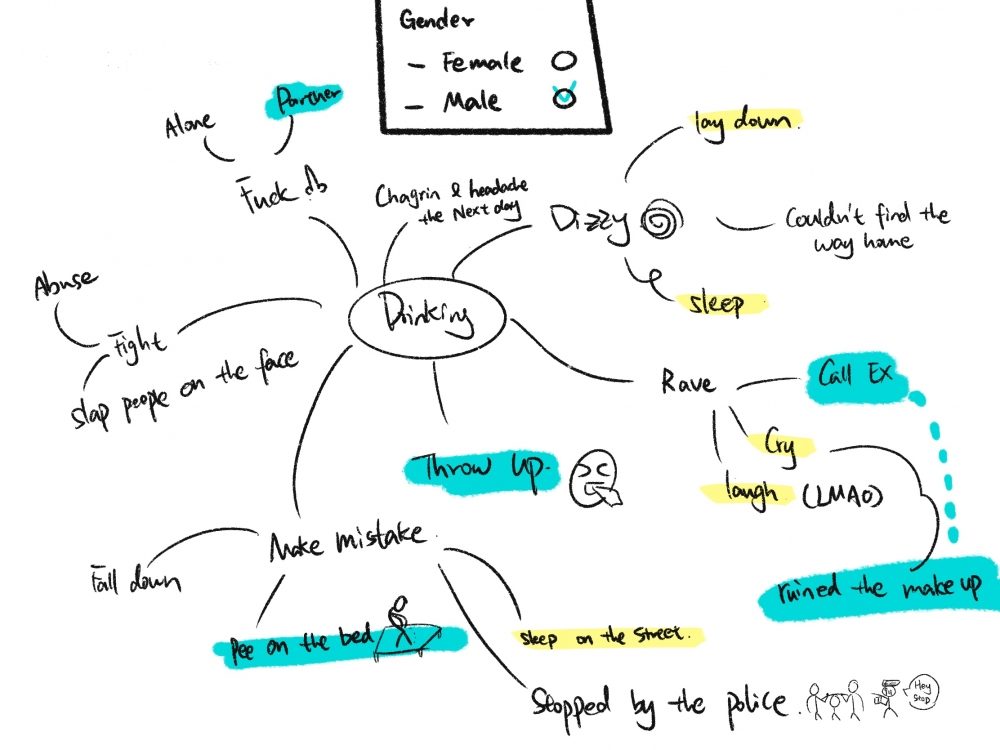 Gender
- Female
- Male
Partner
Alone
Fuck
Chagrin & headache
the Next day
lay down.
Dizzy
Couldn't find the
way home
sleep
Abuse
Fight
slap people on the face
Drinking
Rave
Call Ex
Cry
laugh (LMAO)
Throw up.
ruined the make up
Make mistake.
Fall down
Pee on the bed
sleep on the street.
Stopped by the police.
Hey
Stop